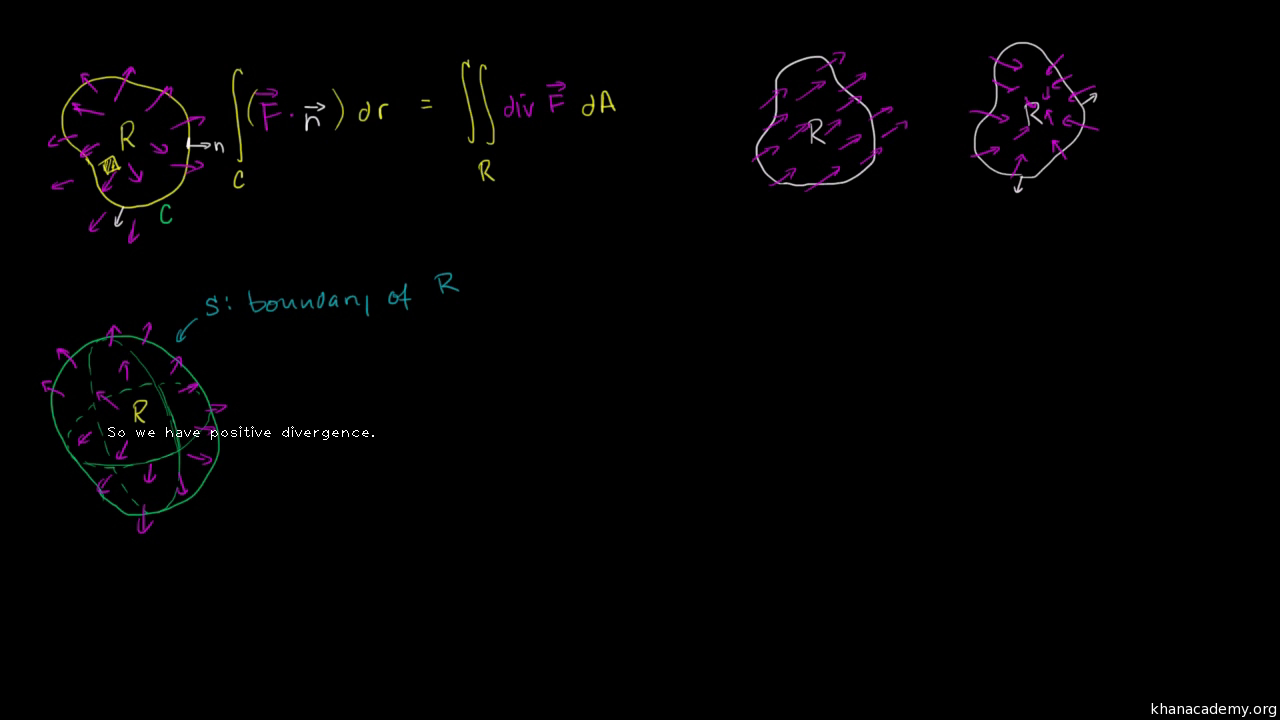 R
n
C
∫_C (F⃗ · n⃗) dr = ∬_R div F⃗ dA
R
R
S: boundary of R
R
So we have positive divergence.
khanacademy.org